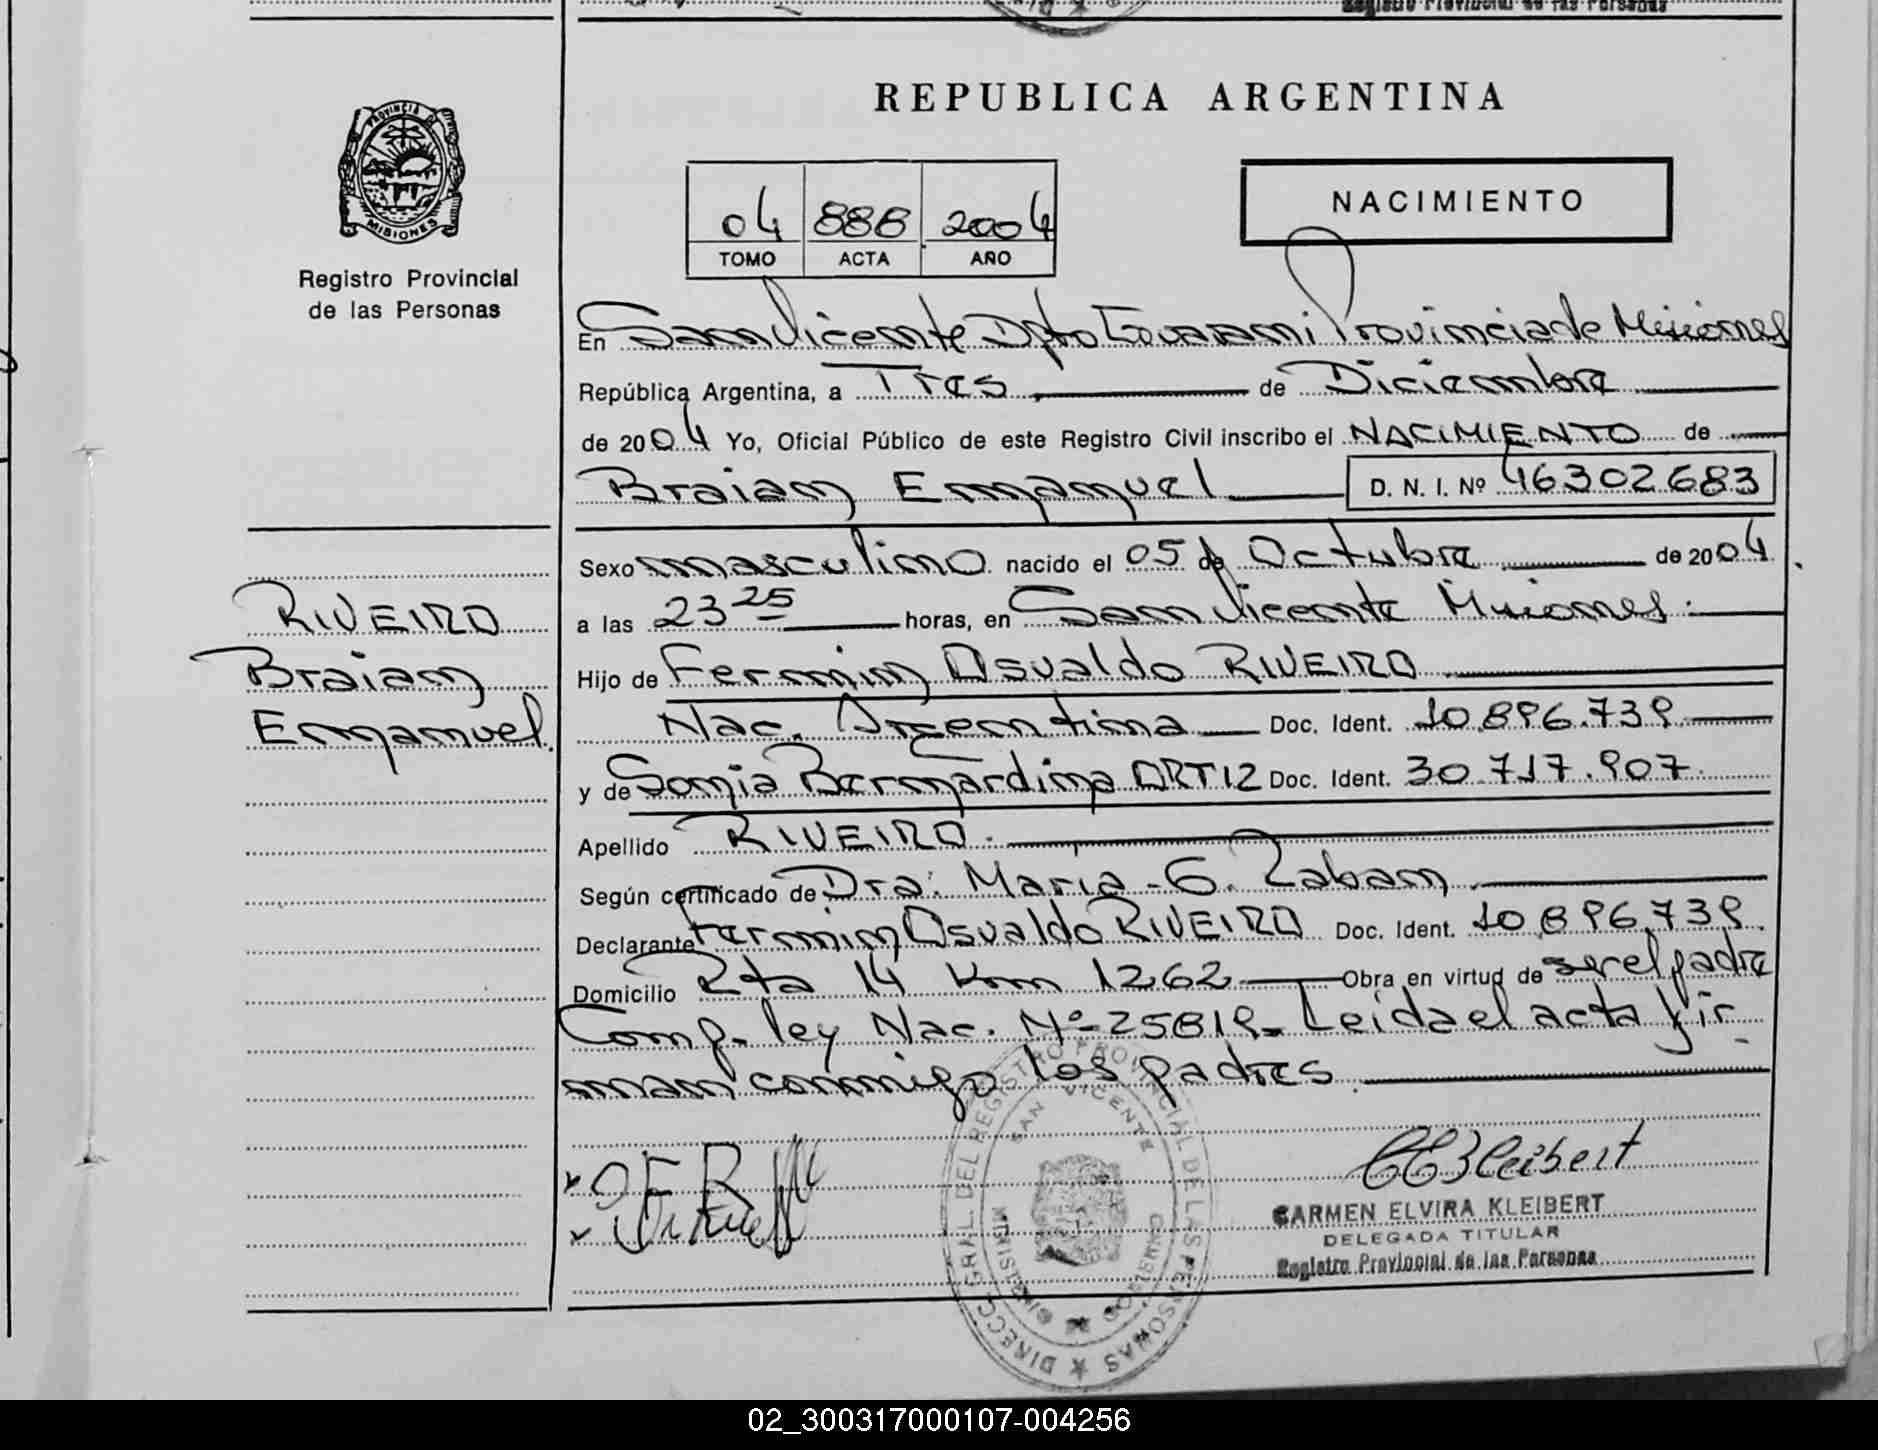 Registro Provincial de las Personas
REPUBLICA ARGENTINA
PROVINCIA DE
MISIONES
Registro Provincial
de las Personas
04 888 2004
TOMO ACTA AÑO
NACIMIENTO
En San Vicente Dpto Guarani Provincia de Misiones
República Argentina, a Tres de Diciembre
de 2004 Yo, Oficial Público de este Registro Civil inscribo el NACIMIENTO de
Braian Emanuel D. N. I. Nº 46302683
Sexo masculino nacido el 05 de Octubre de 2004
a las 23 25 horas, en San Vicente Misiones.
Hijo de Fermin Osvaldo RIVEIRO
Nac. Argentina Doc. Ident. 10.896.739
y de Sonia Bernardina ORTIZ Doc. Ident. 30.717.907
Apellido RIVEIRO.
Según certificado de Dra. Maria G. Zaban
Declarante Fermin Osvaldo RIVEIRO Doc. Ident. 10.896.739
Domicilio Rta 14 Km 1262 Obra en virtud de ser el padre
Comp. ley Nac. Nº 25819. Leida el acta fir
man conmigo los padres
RIVEIRO
Braian
Emanuel
DIRECC. GRAL. DEL REGISTRO PROVINCIAL DE LAS PERSONAS
SAN VICENTE
MINISTERIO GOBIERNO
CEKleibert
CARMEN ELVIRA KLEIBERT
DELEGADA TITULAR
Registro Provincial de las Personas
02_300317000107-004256